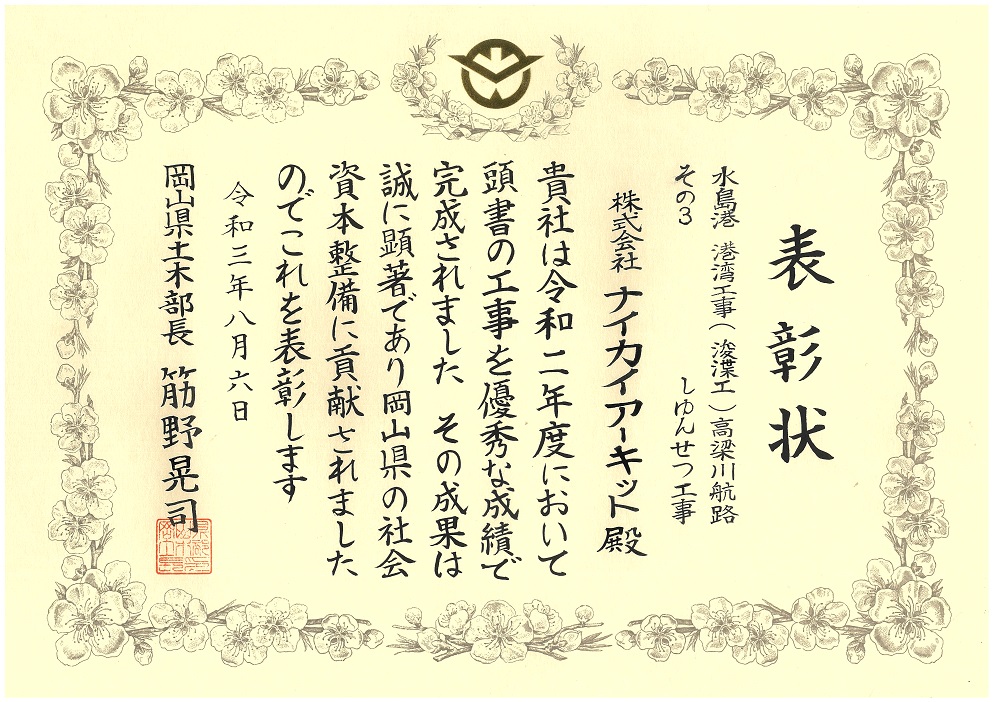 表彰状
水島港 港湾工事(浚渫工)高梁川航路
しゆんせつ工事
その3
株式会社 ナイカイアーキット 殿
貴社は令和二年度において
頭書の工事を優秀な成績で
完成されました その成果は
誠に顕著であり岡山県の社会
資本整備に貢献されました
のでこれを表彰します
令和三年八月六日
岡山県土木部長 筋野晃司